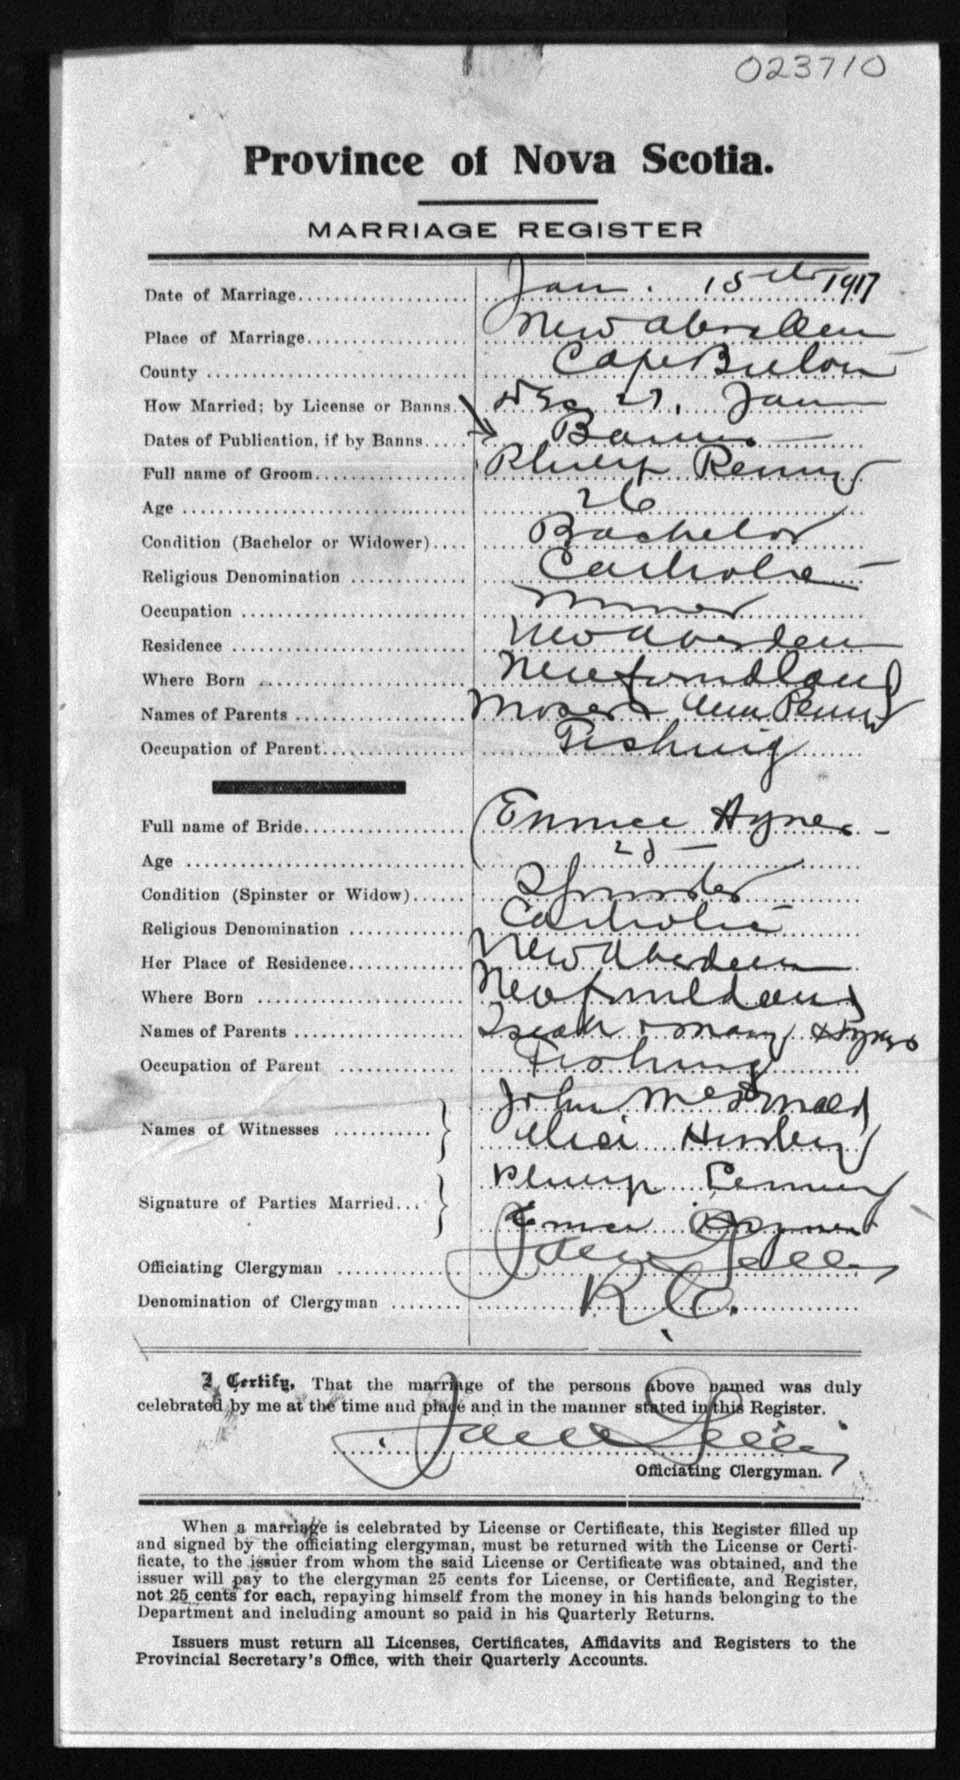 023710
Province of Nova Scotia.
MARRIAGE REGISTER
Date of Marriage Jan. 15th 1917
Place of Marriage New Aberdeen
County Cape Breton
How Married; by License or Banns Dec 27, Jan
Dates of Publication, if by Banns Banns
Full name of Groom Philip Penny
Age 26
Condition (Bachelor or Widower) Bachelor
Religious Denomination Catholic
Occupation Miner
Residence New Aberdeen
Where Born Newfoundland
Names of Parents Moses & Ann Penny
Occupation of Parent Fishing
Full name of Bride Hynes
Age
Condition (Spinster or Widow) Spinster
Religious Denomination Catholic
Her Place of Residence New Aberdeen
Where Born Newfoundland
Names of Parents & Mary Hynes
Occupation of Parent Fishing
John McDonald
Names of Witnesses
Philip Penny
Signature of Parties Married
Hynes
Officiating Clergyman
Denomination of Clergyman R.C.
I Certify, That the marriage of the persons above named was duly
celebrated by me at the time and place and in the manner stated in this Register.
Officiating Clergyman.
When a marriage is celebrated by License or Certificate, this Register filled up
and signed by the officiating clergyman, must be returned with the License or Certi-
ficate, to the issuer from whom the said License or Certificate was obtained, and the
issuer will pay to the clergyman 25 cents for License, or Certificate, and Register,
not 25 cents for each, repaying himself from the money in his hands belonging to the
Department and including amount so paid in his Quarterly Returns.
Issuers must return all Licenses, Certificates, Affidavits and Registers to the
Provincial Secretary's Office, with their Quarterly Accounts.